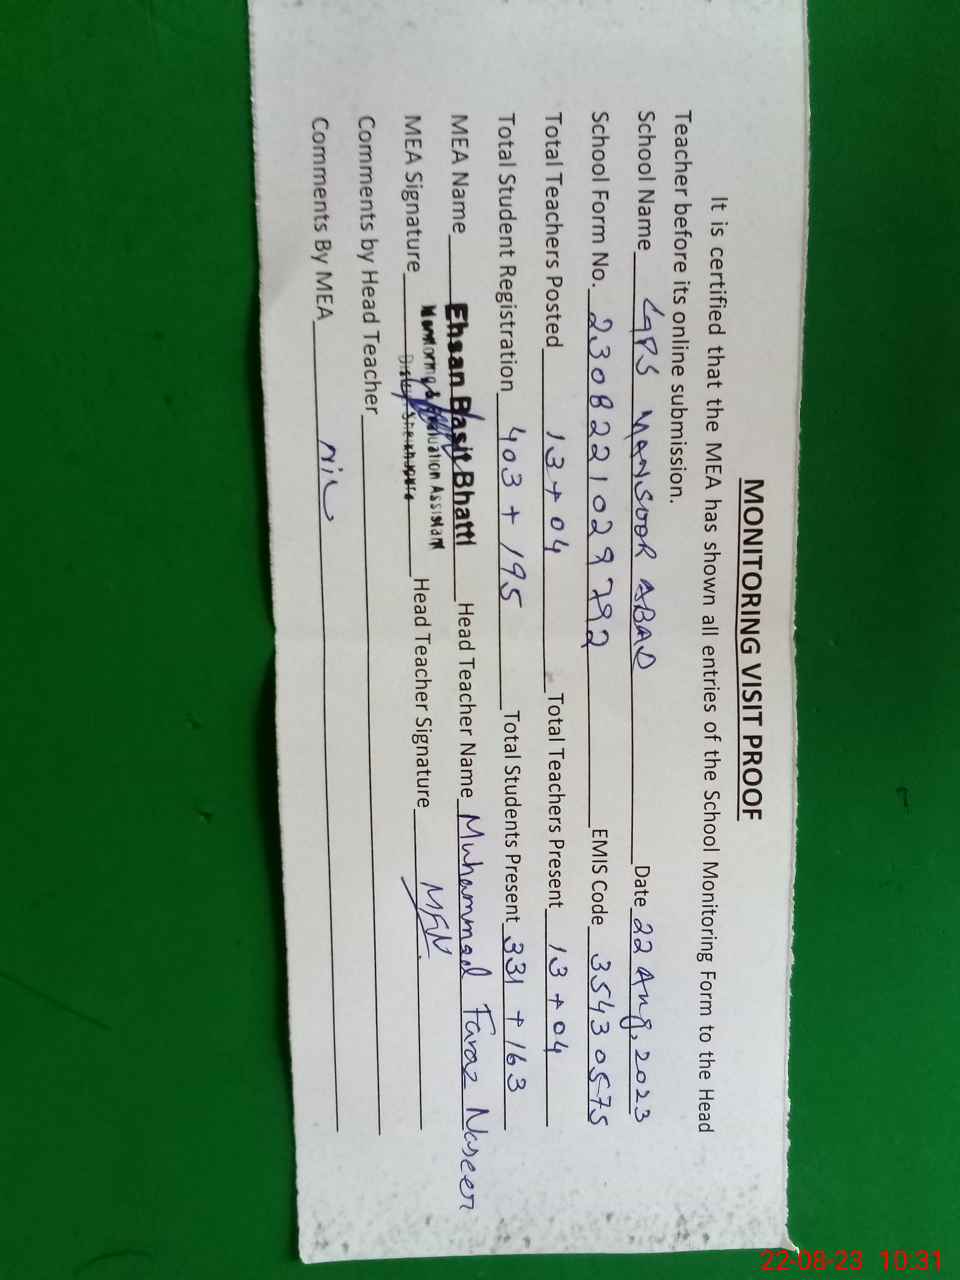 MONITORING VISIT PROOF
It is certified that the MEA has shown all entries of the School Monitoring Form to the Head
Teacher before its online submission.
School Name GPS MANSOOR ABAD Date 22 Aug, 2023
School Form No. 2308221029792 EMIS Code 35430575
Total Teachers Posted 13+04 Total Teachers Present 13+04
Total Student Registration 403+195 Total Students Present 331+163
MEA Name Ehsan Basit Bhatti Head Teacher Name Muhammad Faraz Naseer
Monitoring & Evaluation Assistant
MEA Signature Distt. Sheikhupura Head Teacher Signature MFN
Comments by Head Teacher
Comments By MEA Nil
22-08-23 10:31